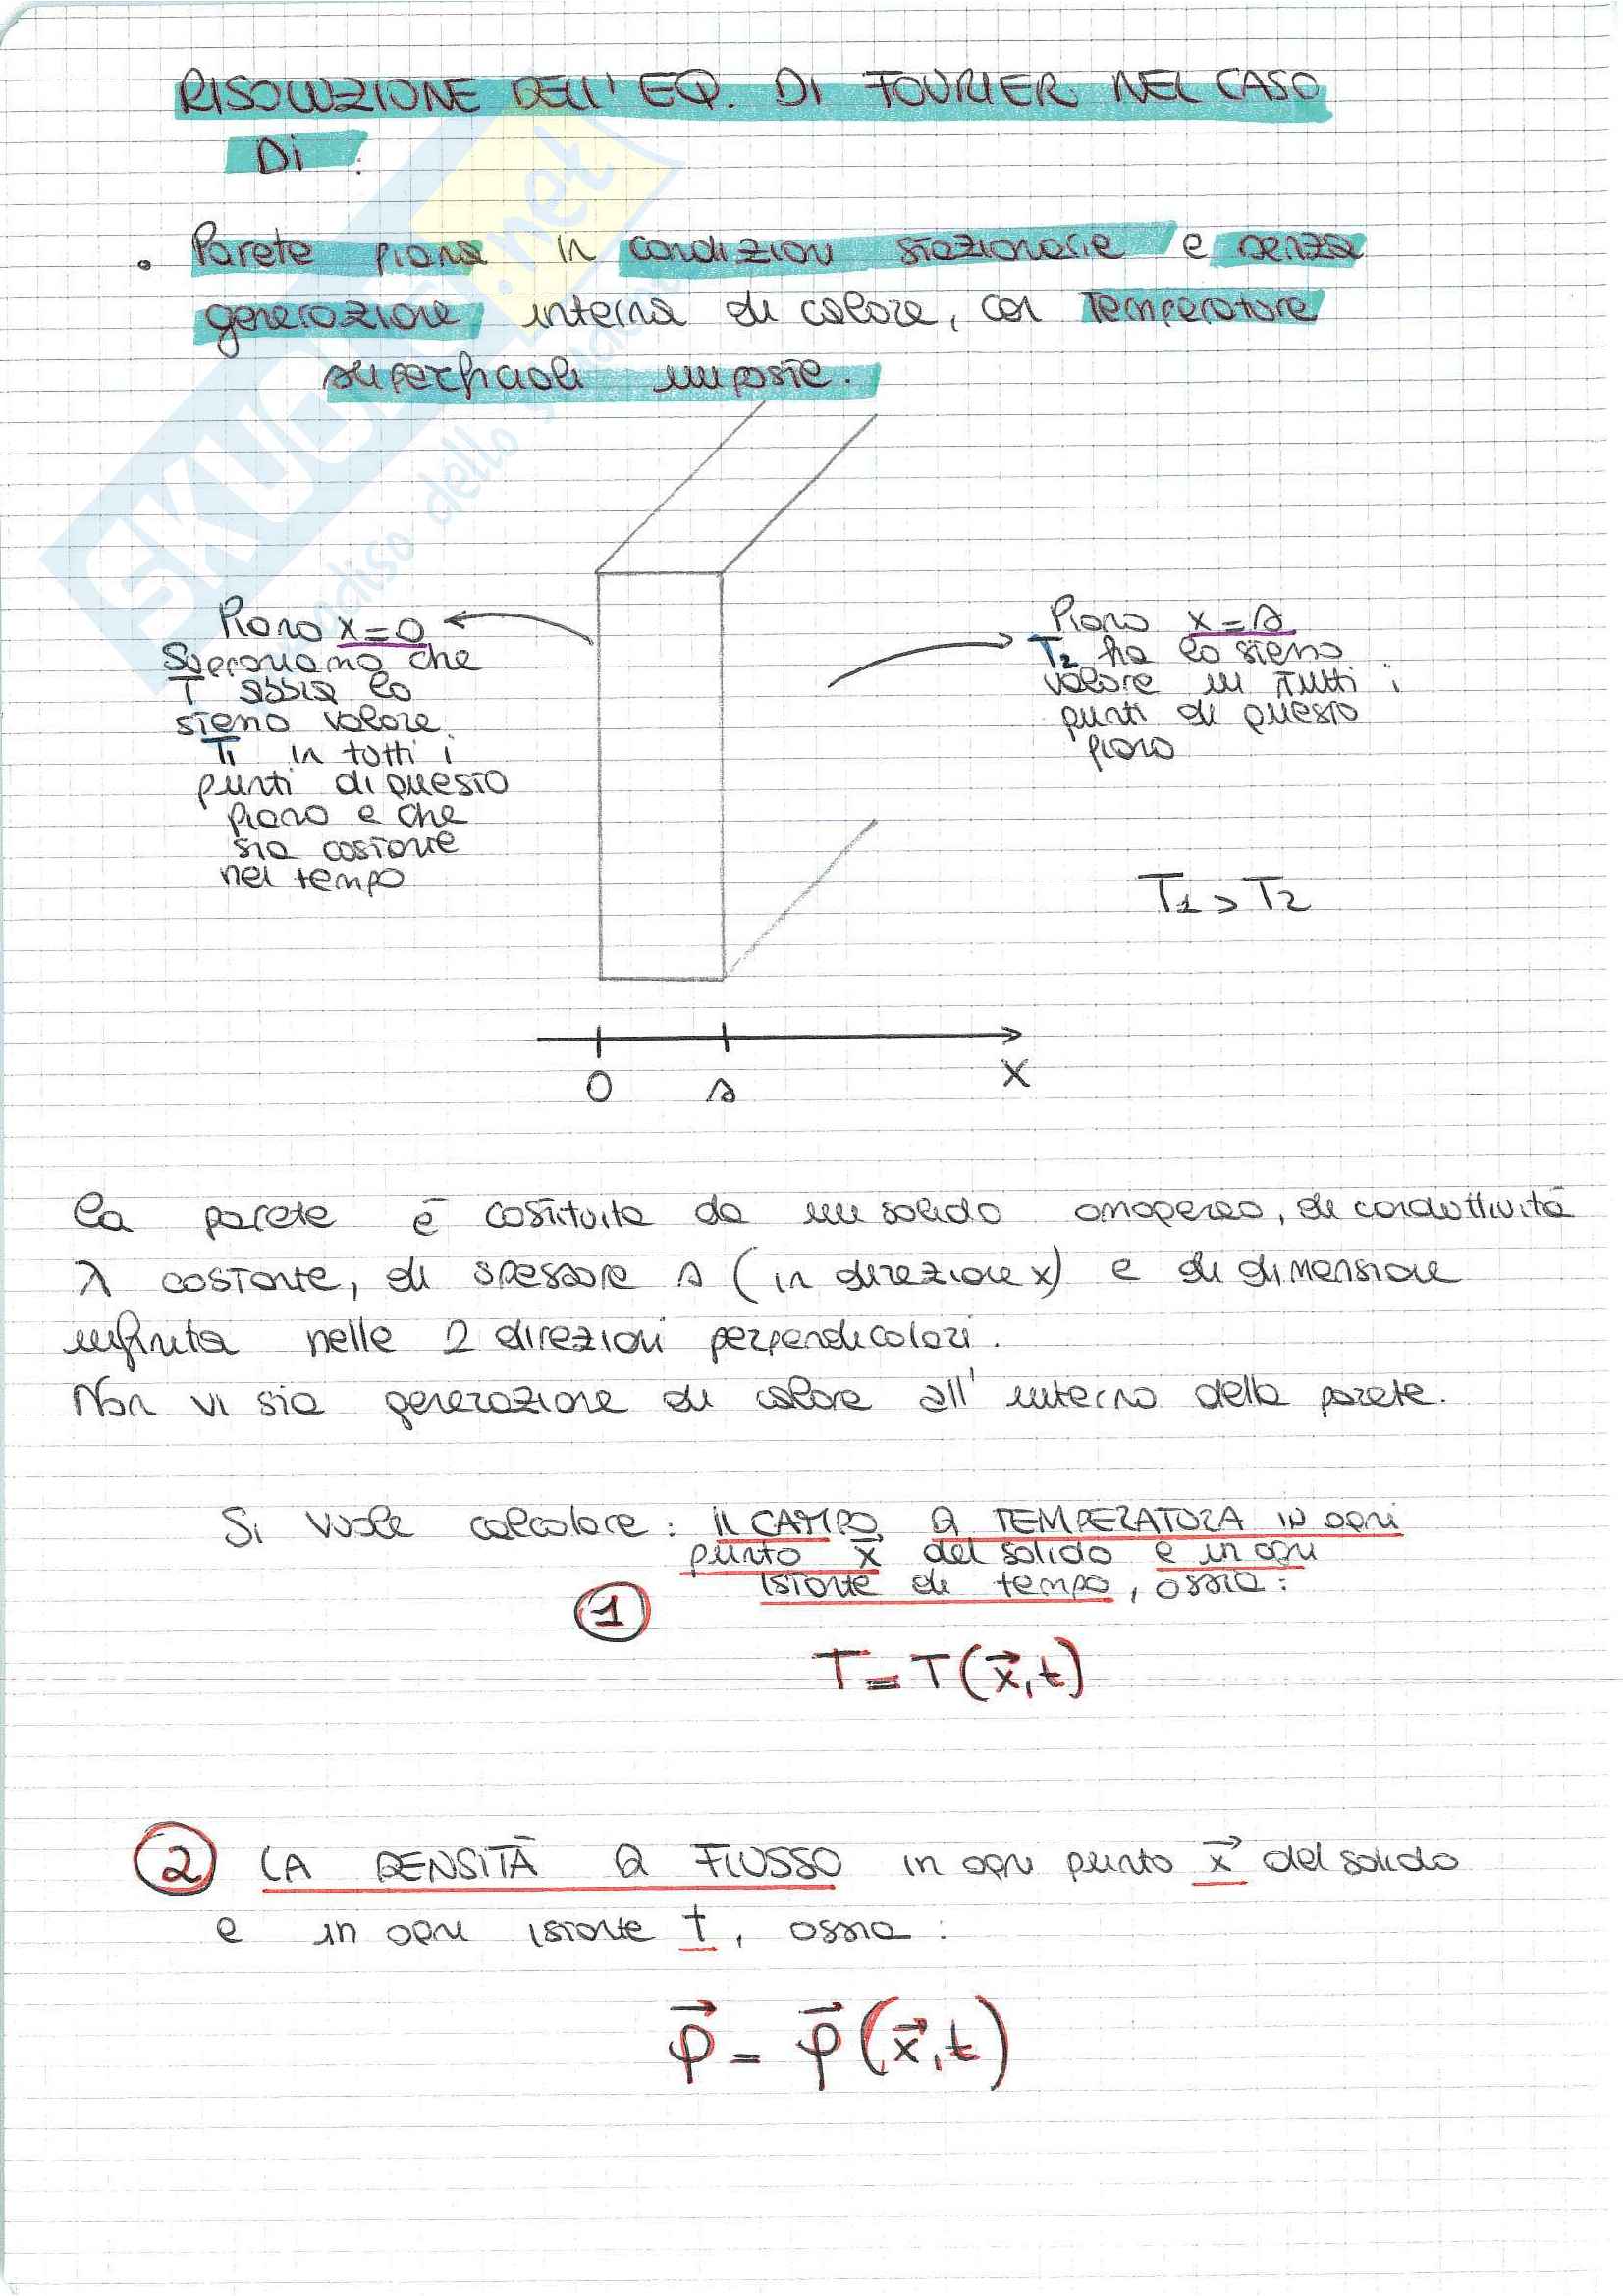 RISOLUZIONE DELL' EQ. DI FOURIER NEL CASO
Di :
• Parete piana in condizioni stazionarie e senza
generazione interna di calore, con Temperature
superficiali imposte.
Piano x=0
Supponiamo che
T abbia lo
stesso valore
T1 in tutti i
punti di questo
piano e che
sia costante
nel tempo
Piano x=s
T2 ha lo stesso
valore in tutti i
punti di questo
piano
T1 > T2
0 s x
La parete è costituita da un solido omogeneo, di conduttività
λ costante, di spessore s (in direzione x) e di dimensione
infinita nelle 2 direzioni perpendicolari.
Non vi sia generazione di calore all'interno della parete.
Si vuole calcolare: IL CAMPO DI TEMPERATURA IN ogni
punto x⃗ del solido e in ogni
istante di tempo, ossia:
1
T = T(x⃗,t)
2 LA DENSITÀ DI FLUSSO in ogni punto x⃗ del solido
e in ogni istante t, ossia:
φ⃗ = φ⃗(x⃗,t)
SKUOLA.net
paradiso dello studente